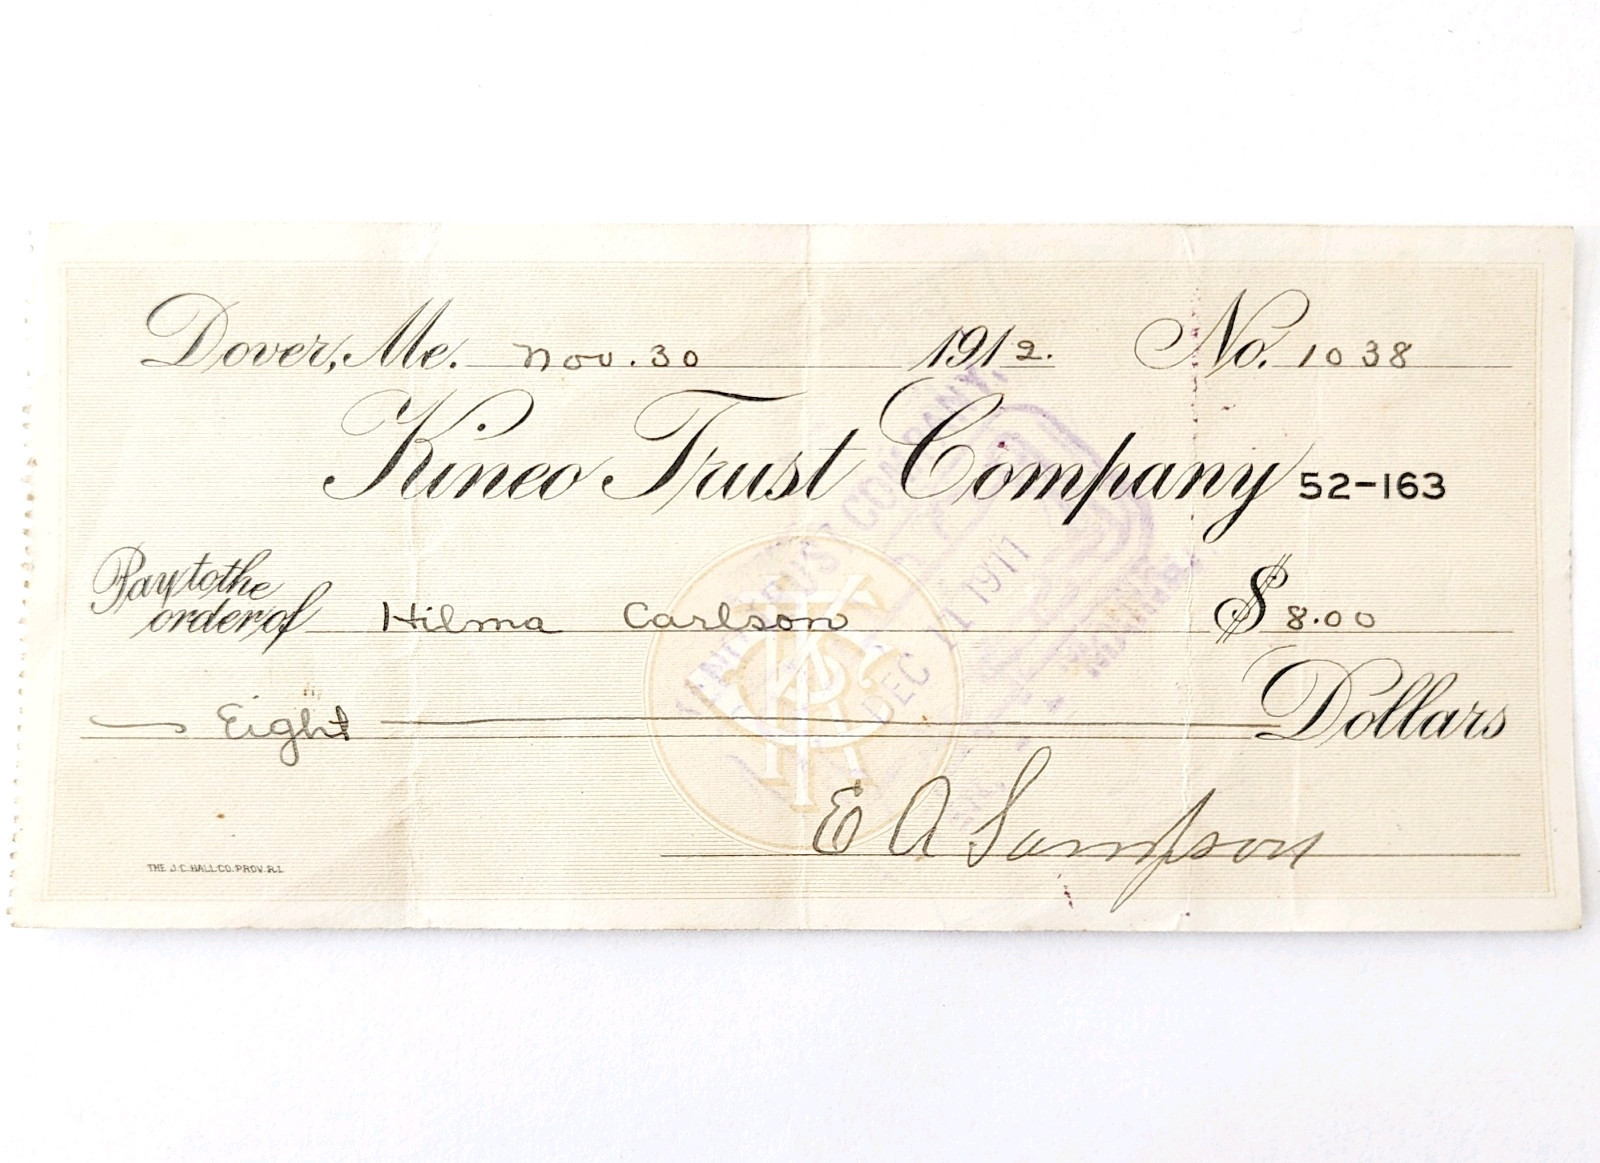 Dover, Me. Nov. 30 1912. No. 1038
Kineo Trust Company 52-163
Pay to the
order of Hilma Carlson $ 8.00
Eight Dollars
E A Sampson
THE J.C. HALL CO. PROV. R.I.
TRUST COMPANY
DEC 11 1911